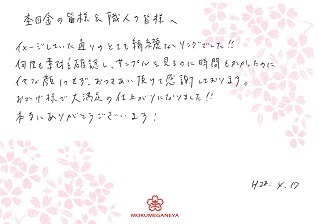 杢目金の皆様&職人の皆様へ
イメージしていた通りのとても綺麗なリングでした!!
何度も素材を確認し、サンプルを見るのに時間もかかったのに
イヤな顔1つせず、おつきあい頂けて感謝しております。
おかげ様で大満足の仕上がりになりました!!
本当にありがとうございます!
H28. 4. 17
MOKUMEGANEYA